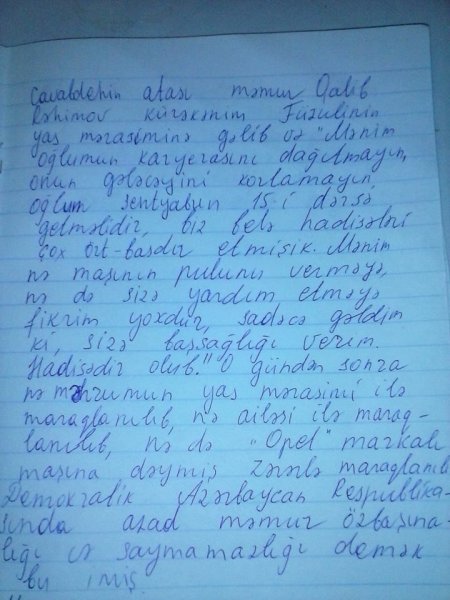 Cavabdehin atası məmur Qalib
Rəhimov kürəkənim Füzulinin
yas mərasiminə gəlib və "Mənim
oğlumun karyerasını dağıtmayın,
onun gələcəyini korlamayın,
oğlum sentyabrın 15-i dərsə
getməlidir, biz belə hadisələri
çox ört-basdır etmişik. Mənim
nə maşının pulunu verməyə,
nə də sizə yardım etməyə
fikrim yoxdur, sadəcə gəldim
ki, sizə başsağlığı verim.
Hadisədir olub." O gündən sonra
nə mərhumun yas mərasimi ilə
maraqlanılıb, nə ailəsi ilə maraq-
lanılıb, nə də "Opel" markalı
maşına dəymiş zərərlə maraqlanılıb
Demokratik Azərbaycan Respublika-
sında azad məmur özbaşına-
lığı və saymamazlığı demək
bu imiş.